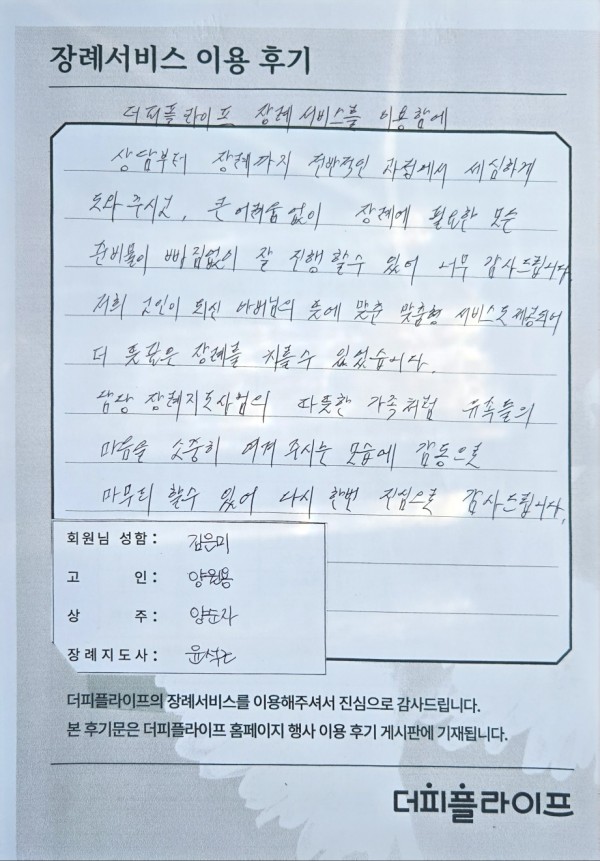 장례서비스 이용 후기
더피플라이프 장례 서비스를 이용함에
상담부터 장례까지 전반적인 과정에서 세심하게
도와 주시고, 큰 어려움 없이 장례에 필요한 모든
준비물이 빠짐없이 잘 진행 할수 있어 너무 감사드립니다.
저희 고인이 되신 아버님의 뜻에 맞춘 맞춤형 서비스도 제공되어
더 뜻깊은 장례를 치를수 있었습니다.
담당 장례지도사님의 따뜻한 가족처럼 유족들의
마음을 소중히 여겨 주시는 모습에 감동으로
마무리 할수 있어 다시 한번 진심으로 감사드립니다.
회원님 성함 : 김은미
고 인 : 양원용
상 주 : 양순자
장례지도사 : 윤석
더피플라이프의 장례서비스를 이용해주셔서 진심으로 감사드립니다.
본 후기문은 더피플라이프 홈페이지 행사 이용 후기 게시판에 기재됩니다.
더피플라이프